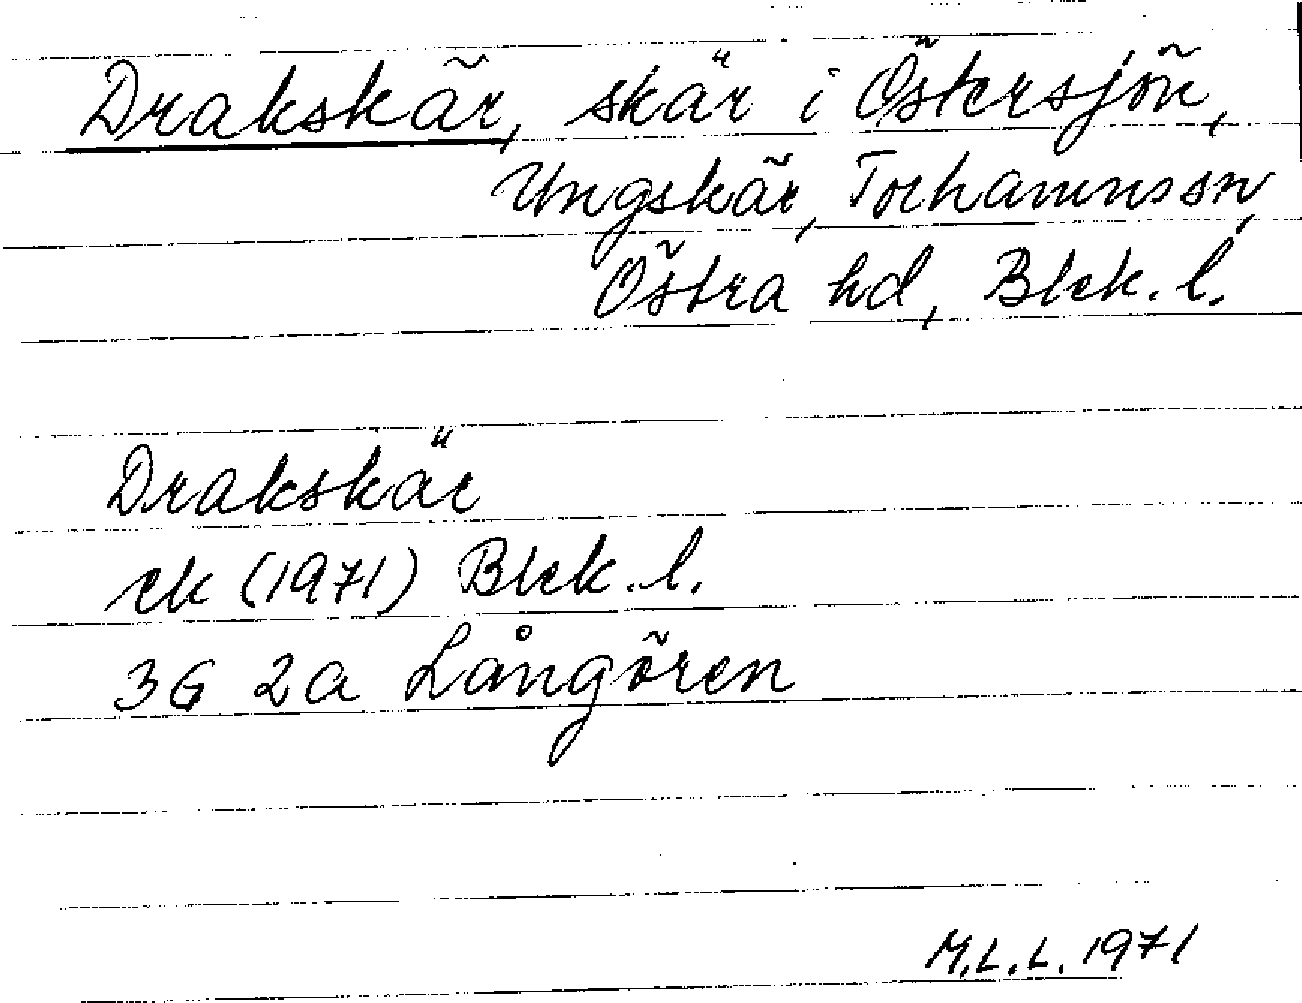 Drakskär, skär i Östersjön,
Ungskär, Torhamns sn,
Östra hd, Blek. l.
Drakskär
ek (1971) Blek. l.
3G 2a Långören
M.L.L. 1971